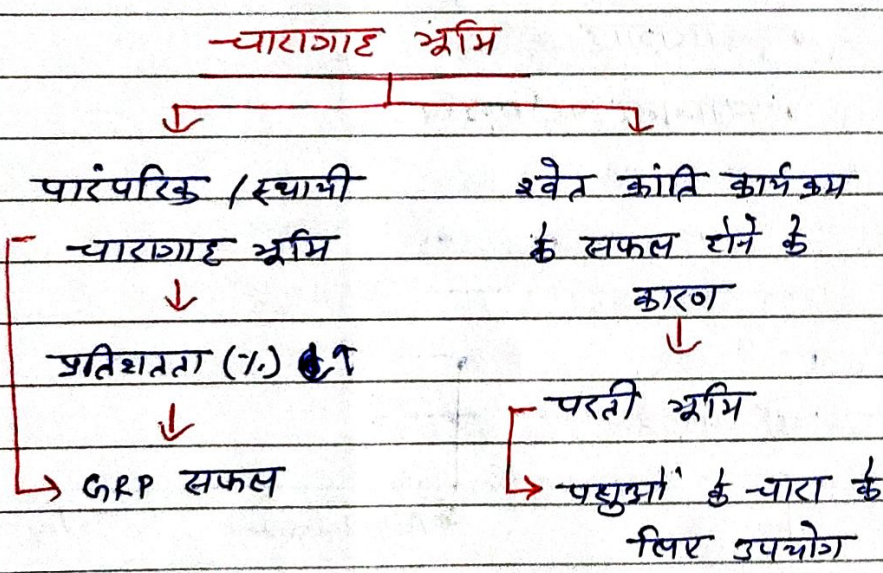 चारागाह भूमि
पारंपरिक / स्थायी
चारागाह भूमि
प्रतिशतता (%) ↑
GRP सफल
श्वेत क्रांति कार्यक्रम
के सफल होने के
कारण
परती भूमि
पशुओं के चारा के
लिए उपयोग